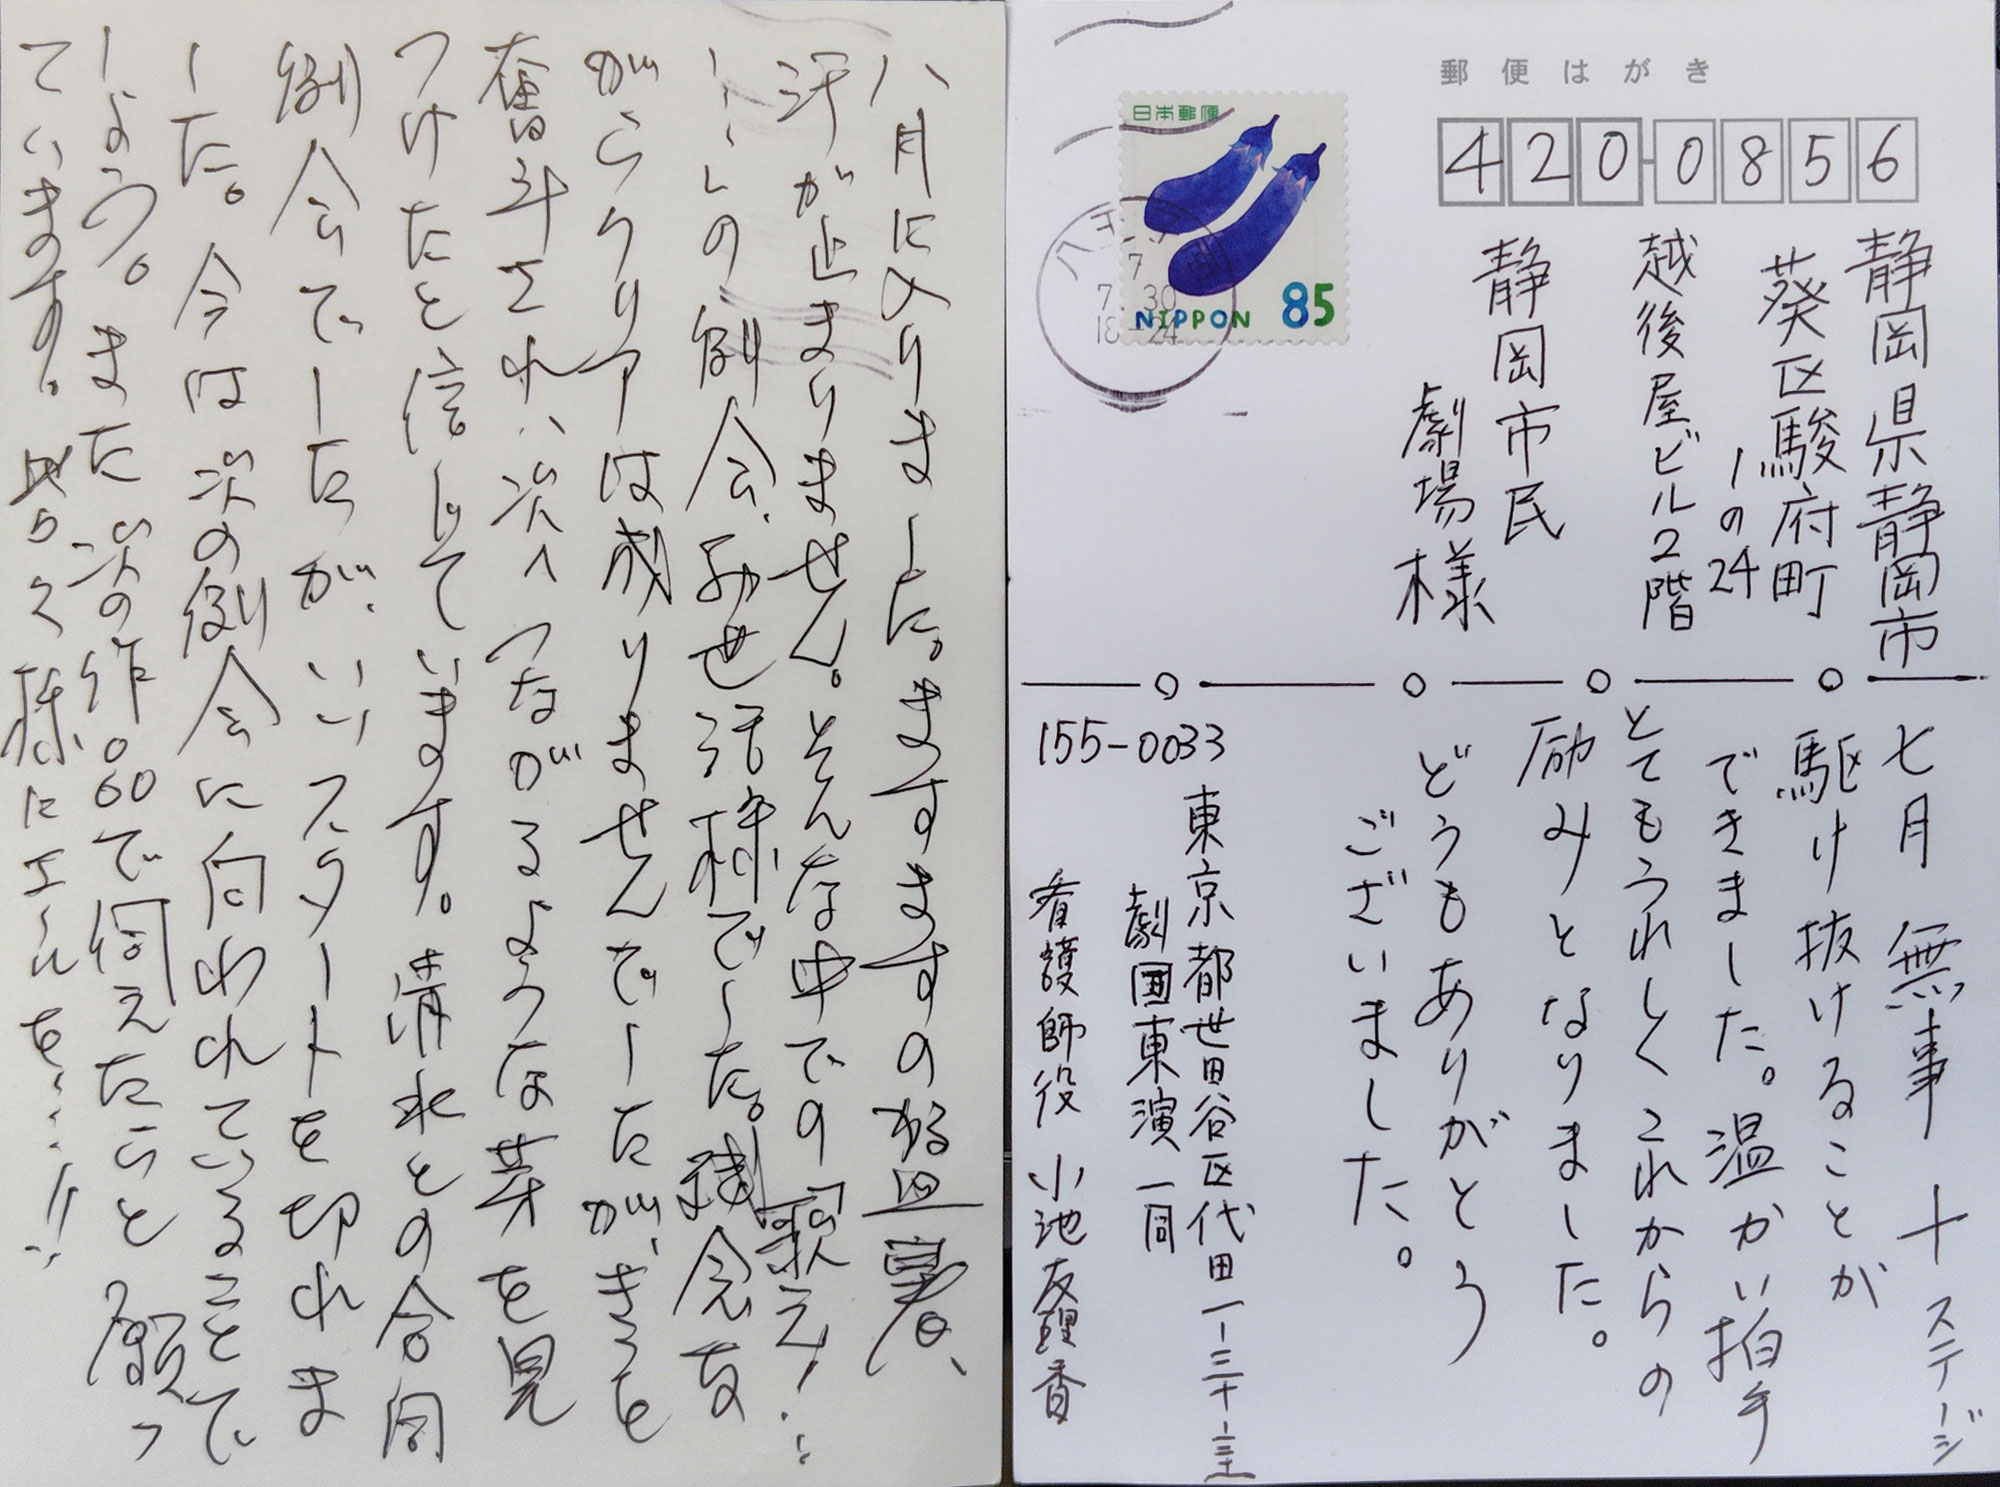 八月に入りました。ますますの猛暑、
汗が止まりません。そんな中での「歌え！…
…」の例会、お世話様でした。残念な
がらクリアは成りませんでしたが、きっと
奮斗され、次へつながるような芽を見
つけたと信じています。清水との合同
例会でしたが、いいスタートを切れま
した。今は次の例会に向われていることで
しょう。また次の作品で伺えたらと願っ
ています。 様にエールを…!!
郵便はがき
420-0856
日本郵便
NIPPON 85
八王子
7 7 30
18-24
静岡県静岡市
葵区駿府町
1の24
越後屋ビル2階
静岡市民
劇場様
七月 無事 十ステージ
駆け抜けることが
できました。温かい拍手
とてもうれしくこれからの
励みとなりました。
どうもありがとう
ございました。
155-0033
東京都世田谷区代田一-三十-
劇団東演一同
看護師役 小池友理香